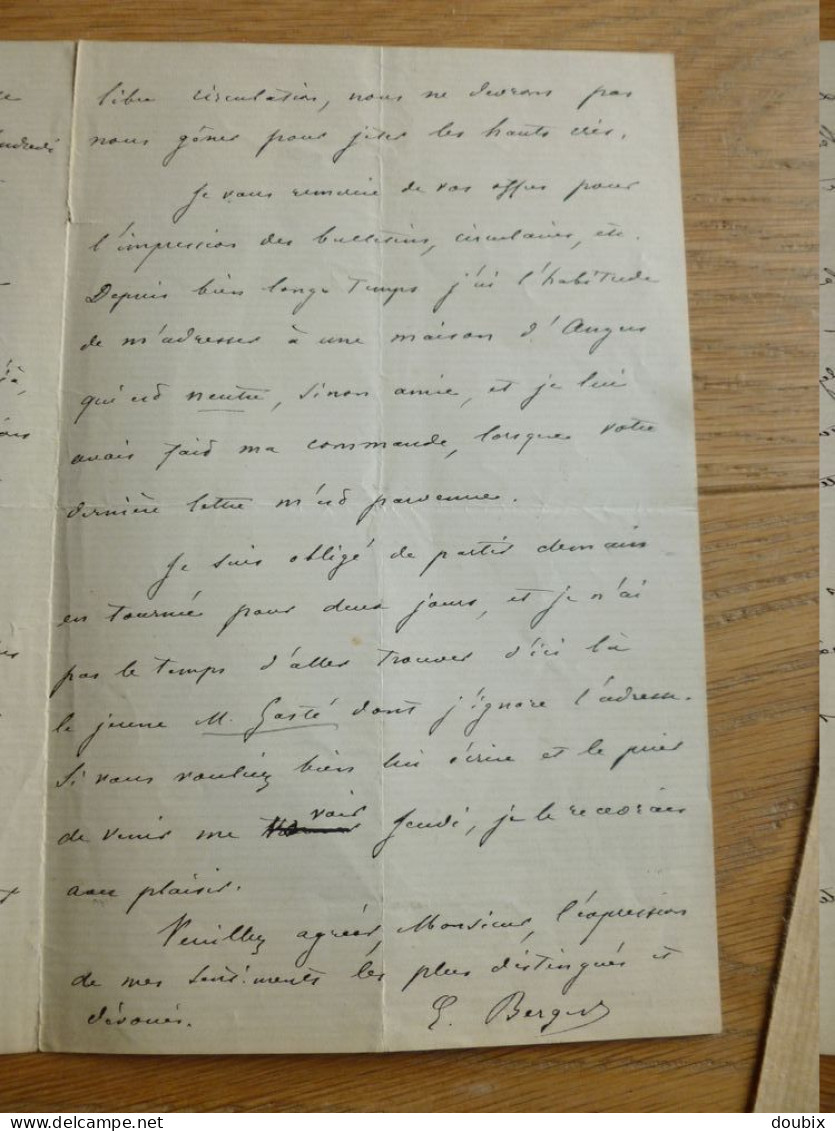 libre circulation, nous ne devrons pas
nous gêner pour jeter les hauts cris.
Je vous remercie de vos offres pour
l'impression des bulletins, circulaires, etc.
Depuis bien longtemps j'ai l'habitude
de m'adresser à une maison d'Angers
qui est neutre, sinon amie, et je lui
avais fait ma commande, lorsque votre
dernière lettre m'est parvenue.
Je suis obligé de partir demain
en tournée pour deux jours, et je n'ai
pas le temps d'aller trouver d'ici là
le jeune M. Gasté dont j'ignore l'adresse.
Si vous vouliez bien lui écrire et le prier
de venir me voir Jeudi, je le recevrais
avec plaisir.
Veuillez agréer, Monsieur, l'expression
de mes sentiments les plus distingués et
dévoués.
E. Berger
doubix